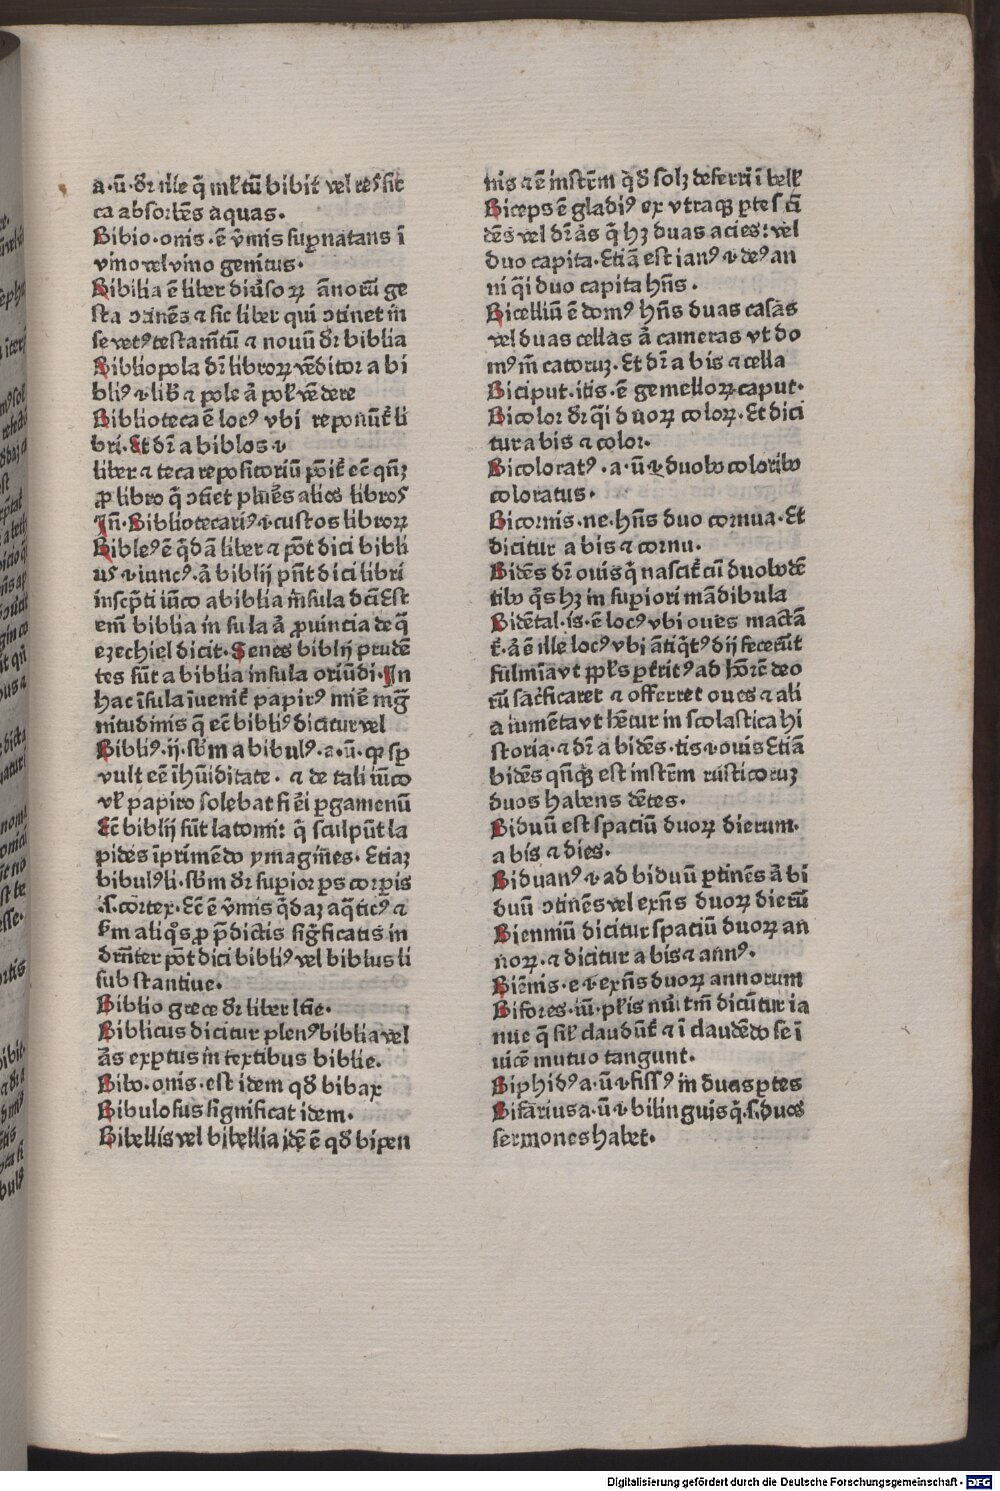 a·ū·dr̄ ille q̄ ml̉tū bibit vel res sic
ca absorbēs aquas·
Bibio·onis·ē v̉mis sup̱natans ī
vino vel vino genitus·
Bibilia ē liber diūsoꝝ ānorū ge
sta ↄtinēs ⁊ sic liber qui ↄtinet in
se vetꝰ testam̄tū ⁊ nouū dr̄ biblia
Bibliopola dr̄ libroꝝ vēditor a bi
blꝰ ·i· lib̉ ⁊ pole ā pol̉ vēdere
Biblioteca ē locꝰ vbi reponūt̉ li
bri·Et dr̄ a biblos ·i·
liber ⁊ teca repositoriū pōit̉ eē qn̄ꝫ
ꝓ libro q̄ ↄtīet plūēs alios libros
In̄·Bibliotecariꝰ·i·custos libroꝝ
Bibleꝰ ē q̄dā liber ⁊ pōt dici bibli
us ·i·iuncꝰ·ā biblij pn̄t dici libri
inscp̄ti iūco a biblia īnsula dcī Est
em̄ biblia in sula ā ꝓuincia de q̄
ezechiel dicit·Senes biblij prudē
tes sūt a biblia insula oriūdi·In
hac īsula īuenit̉ papirꝰ mīē mḡ
nitudinis q̄ eē bibliꝰ dicitur vel
Bibliꝰ·ij·sb̄m a bibulꝰ·a·ū·qꝛ sp̱
vult eē īhūiditate·⁊ de tali iūco
vl̉ papiro solebat fi ēi ꝑgamenū
Ec̄ biblij sūt latomi: q̄ sculpūt la
pides īprimēdo ymagīes·Etiaꝫ
bibulꝰ li·sb̄m dr̄ superior ꝑs corꝑis
·s·cortex·Ec̄ ē v̉mis q̄daꝫ aq̄ticꝰ ⁊
sm aliqᵒs ꝓ p̄dictis siḡficatis in
drn̄ter pōt dici bibliꝰ vel biblus li
sub stantiue·
Biblio grece dr̄ liber ltīe·
Biblicus dicitur plenꝰ biblia vel
ās exꝑtus in textibus biblie·
Bibo·onis·est idem qd̄ bibax
Bibulosus significat idem·
Bibellis vel bibellia idē ē qd̄ bipen
nis ⁊ ē instr̄m q̄d solꝫ deferri ī bell̉
Biceps ē gladiꝰ ex vtraqꝫ ꝑte scī
dēs vel dr̄ ās q̄ hꝫ duas acies: vel
duo capita·Etiā est ianꝰ ·i· deꝰ an
ni q̄i duo capita hn̄s·
Bicelliū ē domꝰ hn̄s duas casas
vel duas cellas ā cameras vt do
mꝰ m̄catoruꝫ·Et dr̄ a bis ⁊ cella
Biciput·itis·ē gemelloꝝ caput·
Bicolor dr̄ q̄i duoꝝ coloꝝ·Et dici
tur a bis ⁊ color·
Bicoloratꝰ·a·ū·i·duobꝰ coloribꝰ
coloratus·
Bicornis·ne·hn̄s duo cornua·Et
dicitur a bis ⁊ cornu·
Bidēs dr̄ ouis q̄ nascit̉ cū duobꝰ dē
tibꝰ q̄s hꝫ in superiori mādibula
Bidētal·is·ē locꝰ vbi oues mactā
t̉·ā ē ille locꝰ vbi ātiq̉tꝰ dij fecerūt
fulmīa vt pp̄ls ꝑtritꝰ ad hōrē deo
rū sac̉ficaret ⁊ offerret oues ⁊ ali
a iumēta vt hētur in scolastica hi
storia·⁊ dr̄ a bidēs·tis·i·ouis Etiā
bidēs qn̄qꝫ est instr̄m rusticoruꝫ
duos habens dētes·
Biduū est spaciū duoꝝ dierum·
a bis ⁊ dies·
Biduanꝰ·i·ad biduū ꝑtinēs ā bi
duū ↄtinēs vel exn̄s duoꝝ dierū
Bienniū dicitur spaciū duoꝝ an
noꝝ·⁊ dicitur a bis ⁊ annꝰ·
Biēnis·e·i·exn̄s duoꝝ annorum
Bifores·iū·pl̉is nūi tm̄ dicūtur ia
nue q̄ sil̉ claudūt̉ ⁊ ī claudēdo se ī
uicē mutuo tangunt·
Biphidꝰ a·ū·i·fissꝰ in duas ꝑtes
Bifarius a·ū·i·bilinguis q̄·s·duos
sermones habet·
Digitalisierung gefördert durch die Deutsche Forschungsgemeinschaft - DFG